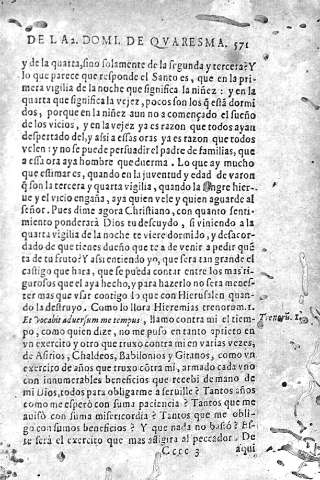 DE LA 2. DOMI. DE QVARESMA. 571
y de la quarta, sino solamente de la segunda y tercera? Y
lo que parece que responde el Santo es, que en la pri-
mera vigilia de la noche que significa la niñez: y en la
quarta que significa la vejez, pocos son los q̃ està dormi
dos, porque en la niñez aun no a començado el sueño
de los vicios, y en la vejez ya es razon que todos ayan
despertado del, y assi a essas oras ya es razon que todos
velen: y no se puede persuadir el padre de familias, que
a essa ora aya hombre que duerma. Lo que ay mucho
que estimar es, quando en la juventud y edad de varon
q̃ son la tercera y quarta vigilia, quando la sangre hier-
ue y el vicio engaña, aya quien vele y quien aguarde al
señor. Pues dime agora Christiano, con quanto senti-
miento ponderarà Dios tu descuydo, si viniendo a la
quarta vigilia de la noche te viere dormido, y desacor-
dado de que tienes dueño que te a de venir a pedir quẽ
ta de tu fruto? Y assi entiendo yo, que sera tan grande el
castigo que hara, que se pueda contar entre los mas ri-
gurosos que el aya hecho, y para hazerlo no sera menes-
ter mas que vsar contigo lo que con Hierusalen quan-
do la destruyo. Como lo llora Hieremias trenorum. 1.
Et vocauit aduersum me tempus, llamo contra mi el tiem-
Trenorũ. 1.
po, como quien dize, no me puso en tanto aprieto en
vn exercito y otro que truxo contra mi en varias vezes,
de Asirios, Chaldeos, Babilonios y Gitanos, como vn
exercito de años que truxo cõtra mi, armado cada vno
con innumerables beneficios que recebi de mano de
mi Dios, todos para obligarme a seruille? Tantos años
como me esperò con suma paciencia? Tantos que me
auisò con suma misericordia? Tantos que me obli-
gò con sumos beneficios? Y que nada no bastò? Es-
te serà el exercito que mas afligira al peccador. De
Cccc 3 aqui